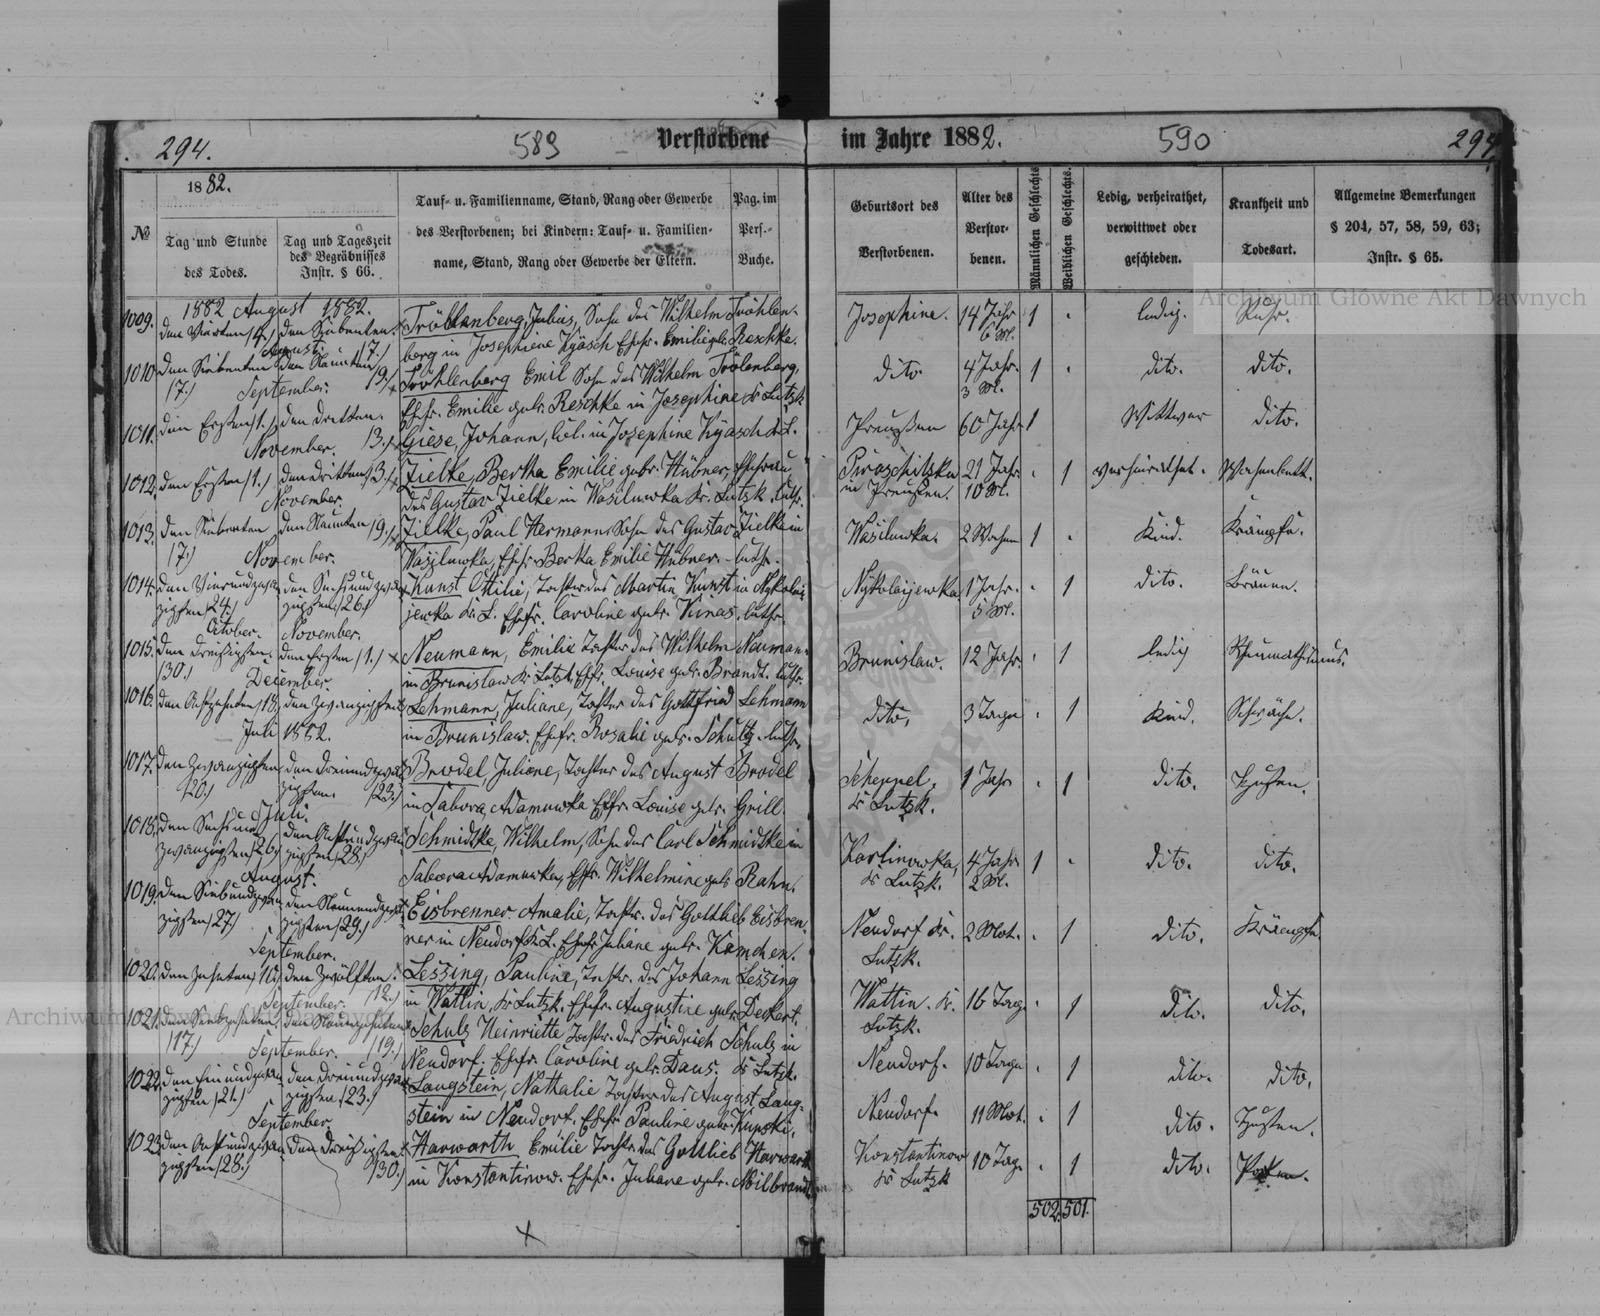 294.
589
Verstorbene
im Jahre 1882.
590
294.
1882.
№
Tag und Stunde
des Todes.
Tag und Tageszeit
des Begräbnisses
Instr. § 66.
Tauf- u. Familienname, Stand, Rang oder Gewerbe
des Verstorbenen; bei Kindern: Tauf- u. Familien-
name, Stand, Rang oder Gewerbe der Eltern.
Pag. im
Pers.-
Buche.
Geburtsort des
Verstorbenen.
Alter des
Verstor-
benen.
Männlichen Geschlechts
Weiblichen Geschlechts.
Ledig, verheirathet,
verwittwet oder
geschieden.
Krankheit und
Todesart.
Allgemeine Bemerkungen
§ 204, 57, 58, 59, 63;
Instr. § 65.
1882 August 1882.
1009. den Vierten /4/ den Siebenten. Tröhlenberg, Julius, Sohn des Wilhelm Tröhlen- Josephine. 14 Jahr 1 ledig. Ruhr.
August. /7./ berg in Josephine Kyäsch Ehefr. Emilie geb. Reschke. 6 M.
1010 den Siebenten den Neunten /9./ Tröhlenberg Emil Sohn des Wilhelm Trölenberg, dito. 4 Jahr. 1 dito. dito.
/7./ September. Ehefr. Emilie geb. Reschke in Josephine Kr Lutzk 3 M.
1011. den Ersten /1./ den Dritten. /3./ Giese, Johann, in Josephine Kyäsch Preußen 60 Jahr 1 Wittwer dito.
November.
1012. den Ersten /1./ den Dritten /3./ Zielke, Bertha Emilie geb. Hübner, Ehefrau in Preußen. 21 Jahr 1 verheirathet. Wochenbett.
November. des Gustav Zielke in Wasilewka Kr. Lutzk. luth. 10 M.
1013. den Siebenten den Neunten /9./ Zielke, Paul Hermann Sohn des Gustav Zielke in Wasilewka. 2 Wochen 1 Kind. Krämpfe.
/7./ November. Wasilewka, Ehefr. Berta Emilie Hübner. luth.
1014. den Vierundzwan- den Sechsundzwan- Kunst Ottilie, Tochter des Martin Kunst in Nykolai- Nykolaijewka 1 Jahr. 1 dito. Bräune.
zigsten /24./ zigsten /26./ jewka Kr. L. Ehefr. Caroline geb. Kinas. luth. 5 M.
October. November.
1015. den Dreißigsten. den Ersten /1./ Neumann, Emilie Tochter des Wilhelm Neumann Brunislaw. 12 Jahr. 1 ledig Rheumathismus.
/30./ December. in Brunislaw Kr Lutzk. Ehefr. Louise geb. Brandt. luth.
1016. den Achtzehnten /18./ den Zwanzigsten Lehmann, Juliane, Tochter des Gottfried Lehmann dito. 3 Tage 1 Kind. Schwäche.
Juli 1882. in Brunislaw. Ehefr. Rosalie geb. Schultz. luth.
1017. den Zwanzigsten den Dreiundzwan- Brodel, Juliane, Tochter des August Brodel Scheppel, 1 Jahr 1 dito. Husten.
/20./ zigsten /23./ in Tabora, Adamuwka Ehefr. Louise geb. Grill. Kr Lutzk.
Juli.
1018. den Sechsund- den Achtundzwan- Schmidtke, Wilhelm, Sohn des Carl Schmidtke in Karlinowka, 4 Jahr 1 dito. dito.
zwanzigsten /26./ zigsten /28./ Tabora Adamuwka, Ehefr. Wilhelmine geb Rahn. Kr Lutzk. 2 M.
August.
1019. den Siebundzwan- den Neunundzwan- Eisbrenner Amalie, Tochtr. des Gottlieb Eisbren- Neudorf Kr. 2 Mot. 1 dito. Krämpfe.
zigsten /27./ zigsten /29./ ner in Neudorf Kr L. Ehefr Juliane geb. Kamchen. Lutzk.
September.
1020. den Zehnten, /10./ den Zwölften. Lessing, Pauline, Tochtr. des Johann Lessing Wattin. Kr. 16 Tage 1 dito. dito.
September. /12./ in Wattin, Kr Lutzk. Ehefr. Augustine geb. Deckert. Lutzk.
1021. den Siebzehnten, den Neunzehnten Schulz Heinriette Tochtr. des Friedrich Schulz in Neudorf. 10 Tage 1 dito. dito.
/17./ September. /19./ Neudorf. Ehefr. Caroline geb. Daus. Kr Lutzk.
1022. den Einundzwan- den Dreiundzwan- Langstein, Nathalie Tochter des August Lang- Neudorf. 11 Mot. 1 dito. Husten.
zigsten /21./ zigsten /23./ stein in Neudorf. Ehefr Pauline geb. Kupski.
September
1023 den Achtundzwan- den Dreißigsten Harwarth Emilie Tochtr. des Gottlieb Harwarth Konstantinow 10 Tage 1 dito. Pocken.
zigsten /28./ /30./ in Konstantinow. Ehefr. Juliane geb. Milbrandt Kr Lutzk
502. 501.
Archiwum Główne Akt Dawnych
Archiwum Główne Akt Dawnych